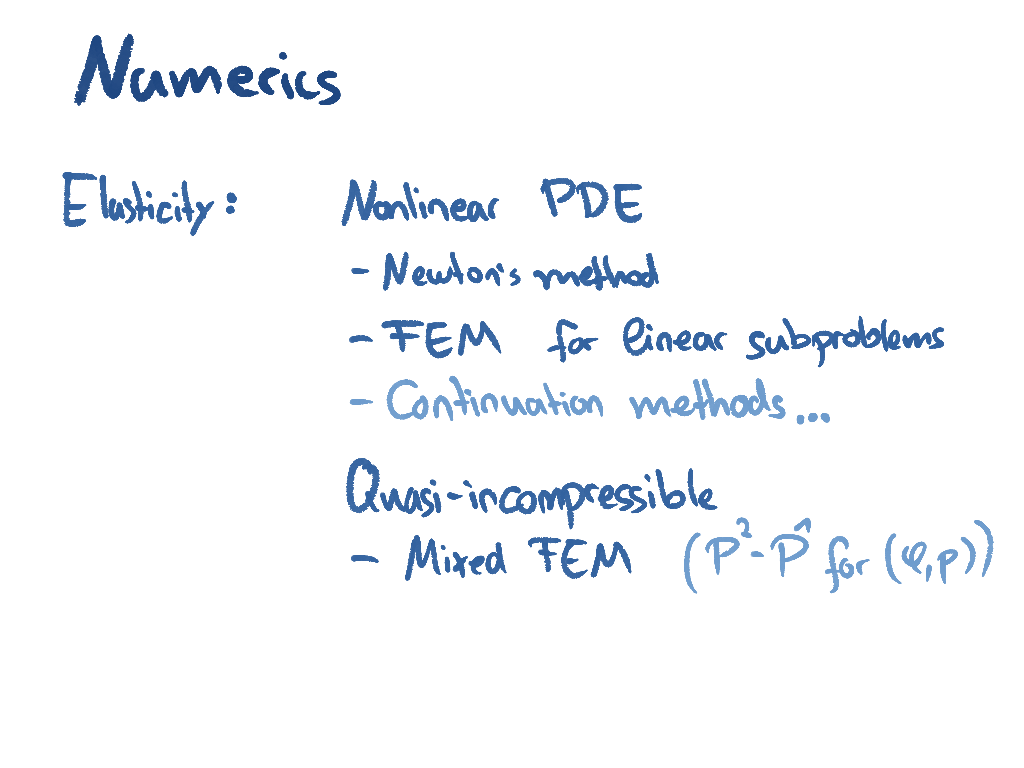 Numerics
Elasticity: Nonlinear PDE
- Newton's method
- FEM for linear subproblems
- Continuation methods...
Quasi-incompressible
- Mixed FEM (P²-P¹ for (φ,p))